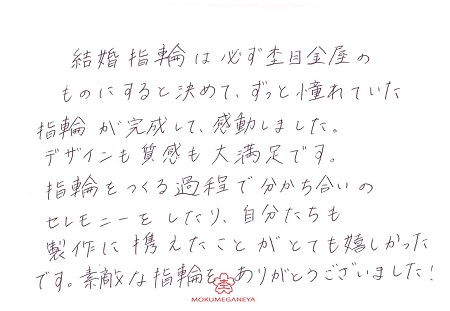 結婚指輪は必ず杢目金屋の
ものにすると決めて、ずっと憧れていた
指輪が完成して、感動しました。
デザインも質感も大満足です。
指輪をつくる過程で分かち合いの
セレモニーをしたり、自分たちも
製作に携えたことがとても嬉しかった
です。素敵な指輪をありがとうございました!
MOKUMEGANEYA